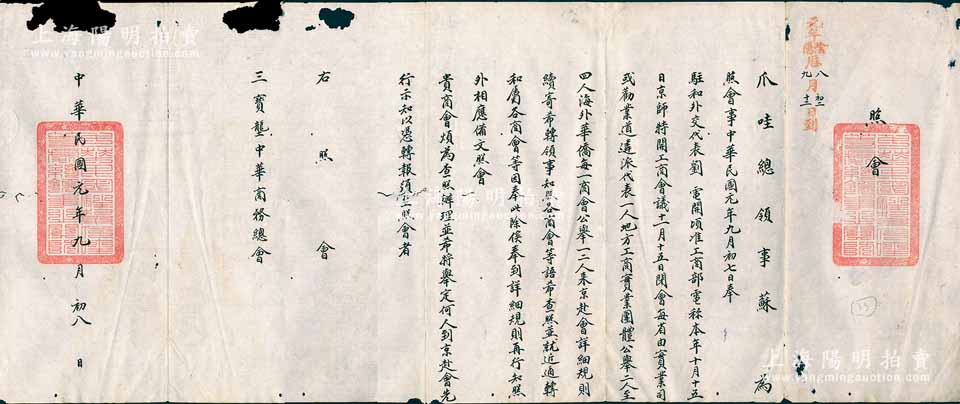 元年陰曆八月初二日到
陽九十二
照會
爪哇總領事蘇 為
照會事中華民國元年九月初七日奉
駐和外交代表劉 電開頃准工商部電稱本年十月十五
日京師特開工商會議十一月十五日閉會每省由實業司
或勸業道遴派代表一人地方工商實業團體公舉二人至
四人海外華僑每一商會公舉一二人來京赴會詳細規則
續寄希轉領事知照各商會等語希查照並就近通轉
和屬各商會等因奉此除俟奉到詳細規則再行知照
外相應備文照會
貴商會煩為查照辦理並希將舉定何人到京赴會先
行示知以憑轉報須至照會者
右 照 會
三寶壟中華商務總會
中華民國元年九月初八日
上海陽明拍賣
www.yangmingauction.com
上海陽明拍賣
www.yangmingauction.com
上海陽明拍賣
www.yangmingauction.com